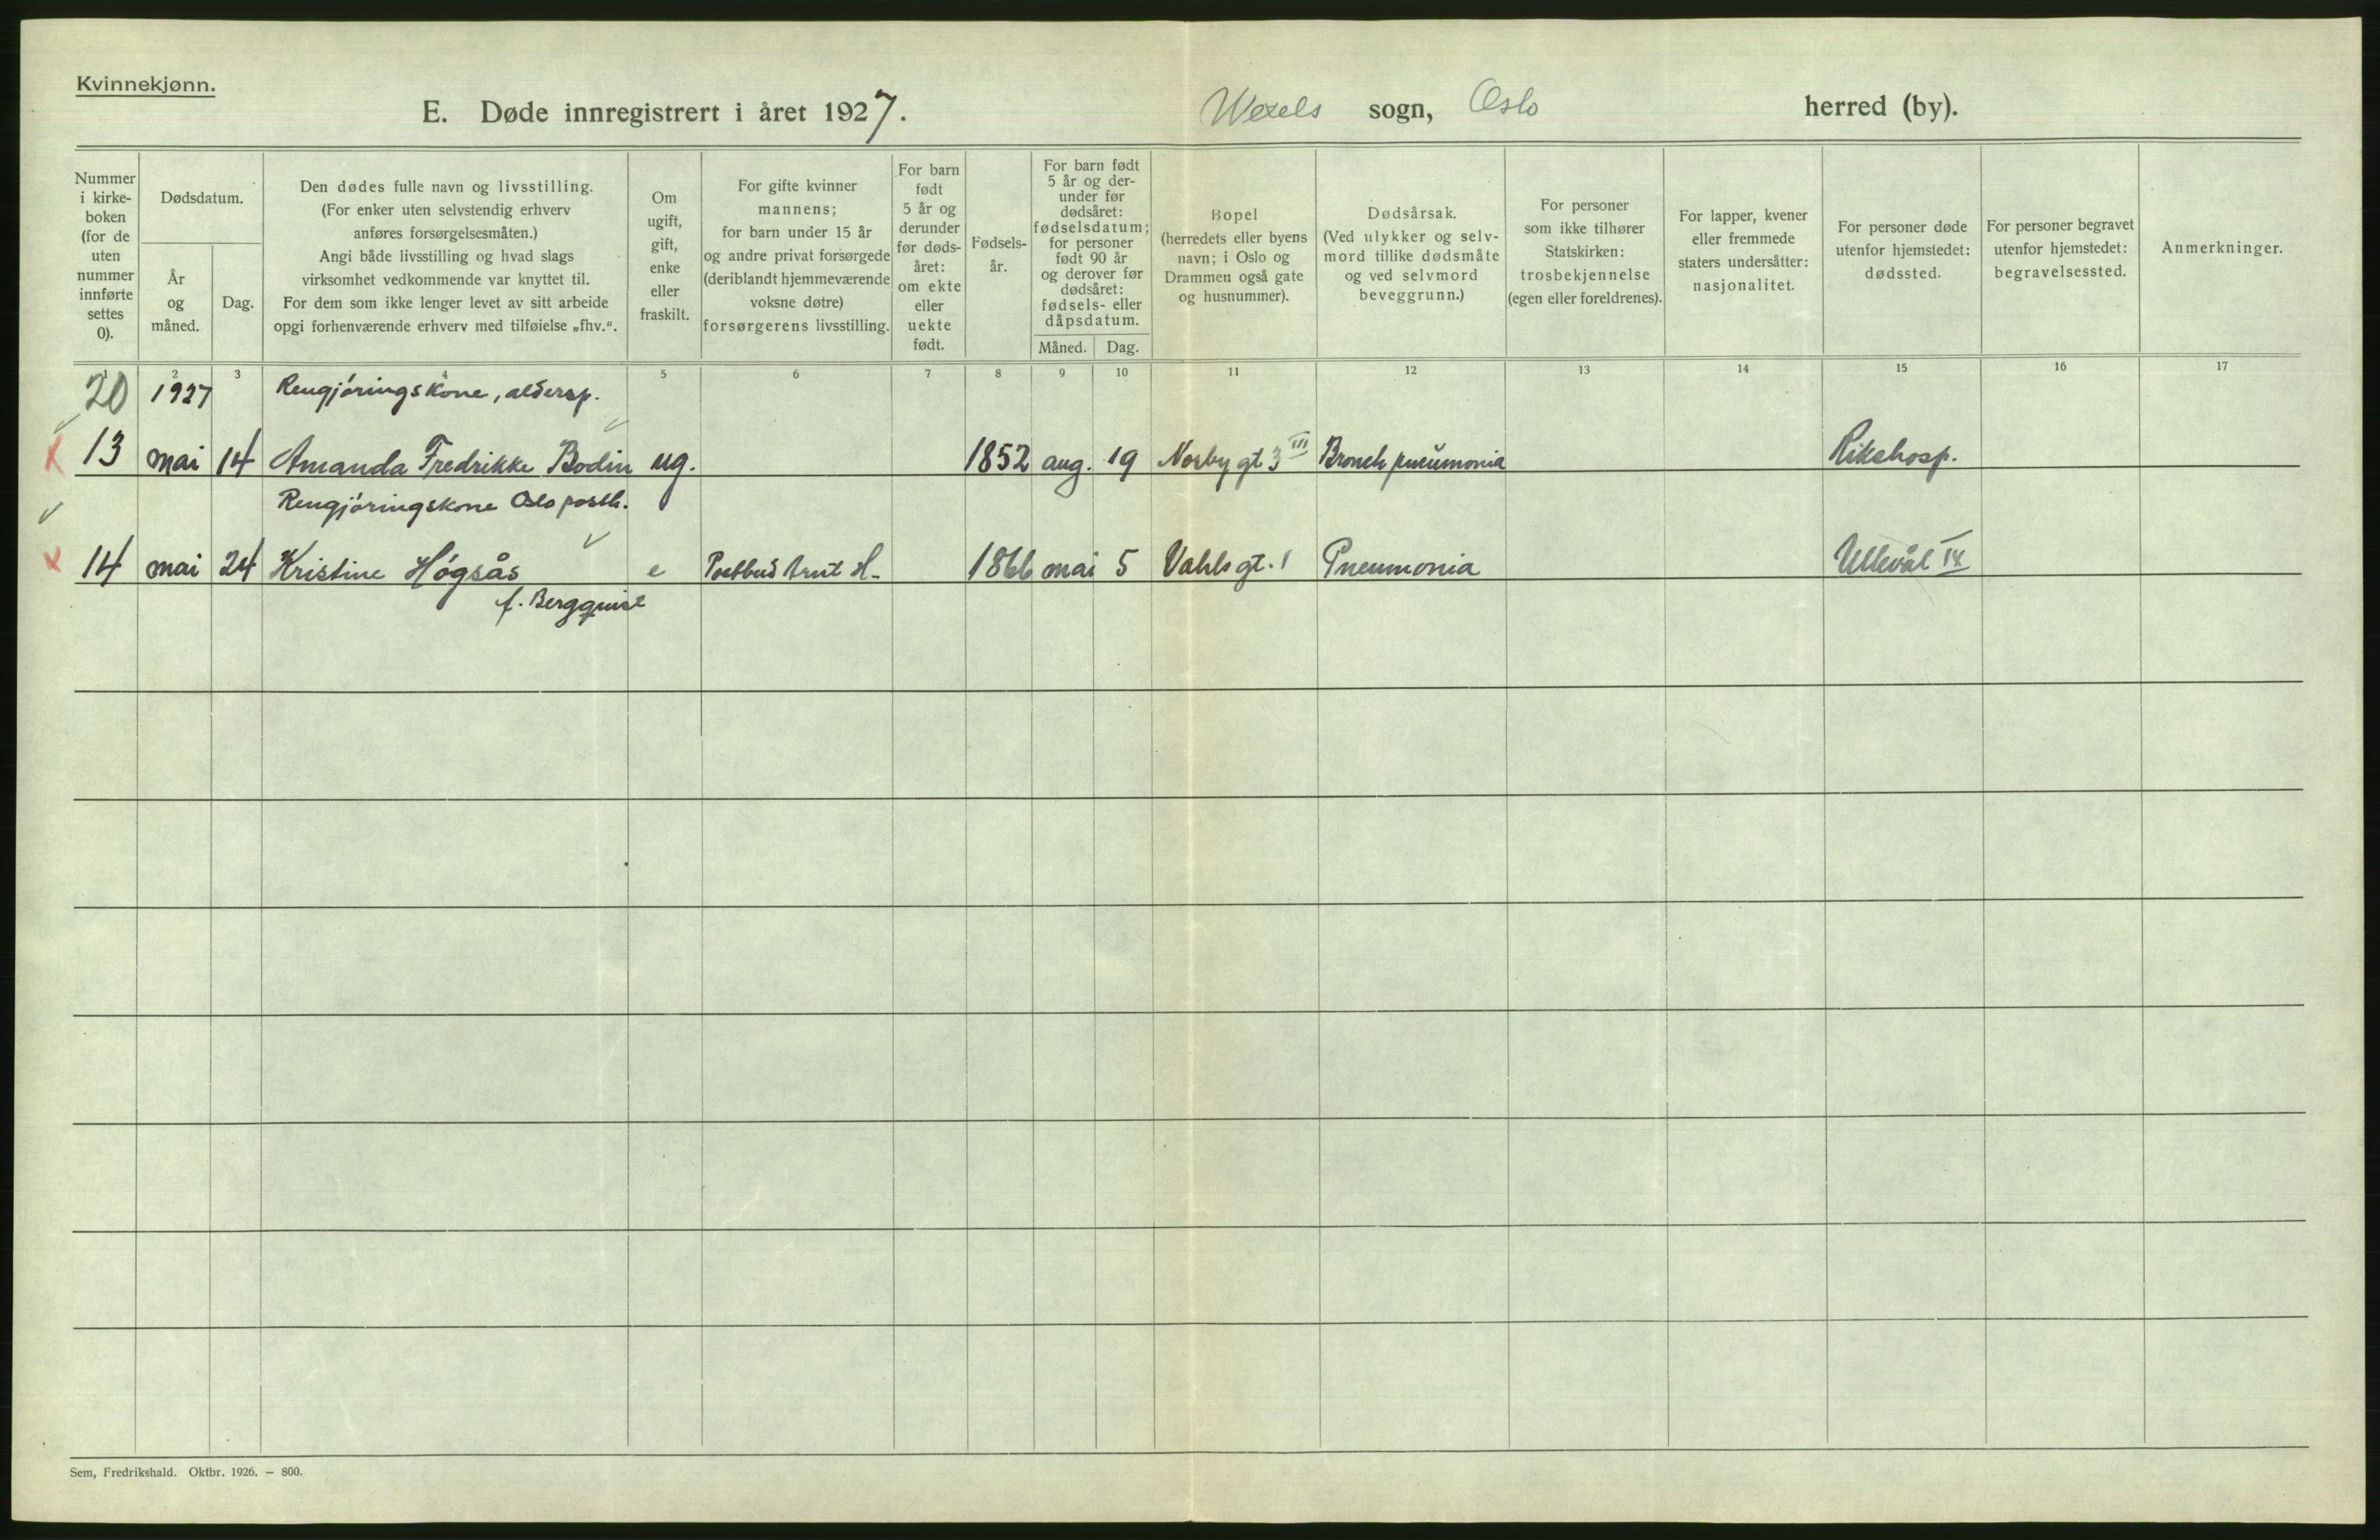 Kvinnekjønn.
E. Døde innregistrert i året 1927.
Wexels sogn, Oslo herred (by).
Nummer i kirke-boken (for de uten nummer innførte settes 0).
Dødsdatum.
År og måned.
Dag.
Den dødes fulle navn og livsstilling.
(For enker uten selvstendig erhverv
anføres forsørgelsesmåten.)
Angi både livsstilling og hvad slags
virksomhet vedkommende var knyttet til.
For dem som ikke lenger levet av sitt arbeide
opgi forhenværende erhverv med tilføielse „fhv.“.
Om
ugift,
gift,
enke
eller
fraskilt.
For gifte kvinner
mannens;
for barn under 15 år
og andre privat forsørgede
(deriblandt hjemmeværende
voksne døtre)
forsørgerens livsstilling.
For barn
født
5 år og
derunder
før døds-
året:
om ekte
eller
uekte
født.
Fødsels-
år.
For barn født
5 år og der-
under før
dødsåret:
fødselsdatum;
for personer
født 90 år
og derover før
dødsåret:
fødsels- eller
dåpsdatum.
Måned. Dag.
Bopel
(herredets eller byens
navn; i Oslo og
Drammen også gate
og husnummer).
Dødsårsak.
(Ved ulykker og selv-
mord tillike dødsmåte
og ved selvmord
beveggrunn.)
For personer
som ikke tilhører
Statskirken:
trosbekjennelse
(egen eller foreldrenes).
For lapper, kvener
eller fremmede
staters undersåtter:
nasjonalitet.
For personer døde
utenfor hjemstedet:
dødssted.
For personer begravet
utenfor hjemstedet:
begravelsessted.
Anmerkninger.
1 2 3 4 5 6 7 8 9 10 11 12 13 14 15 16 17
20 1927 Rengjøringskone, aldersp.
13 mai 14 Amanda Fredrikke Bodin ug. 1852 aug. 19 Norbygt 3 III Bronch pneumonia Rikshosp.
Rengjøringskone Oslo postk.
14 mai 24 Kristine Høgsås e Postbud H. 1866 mai 5 Vahlsgt. 1 Pneumonia Ullevål IX
f. Bergquist
Sem, Fredrikshald. Oktbr. 1926. – 800.